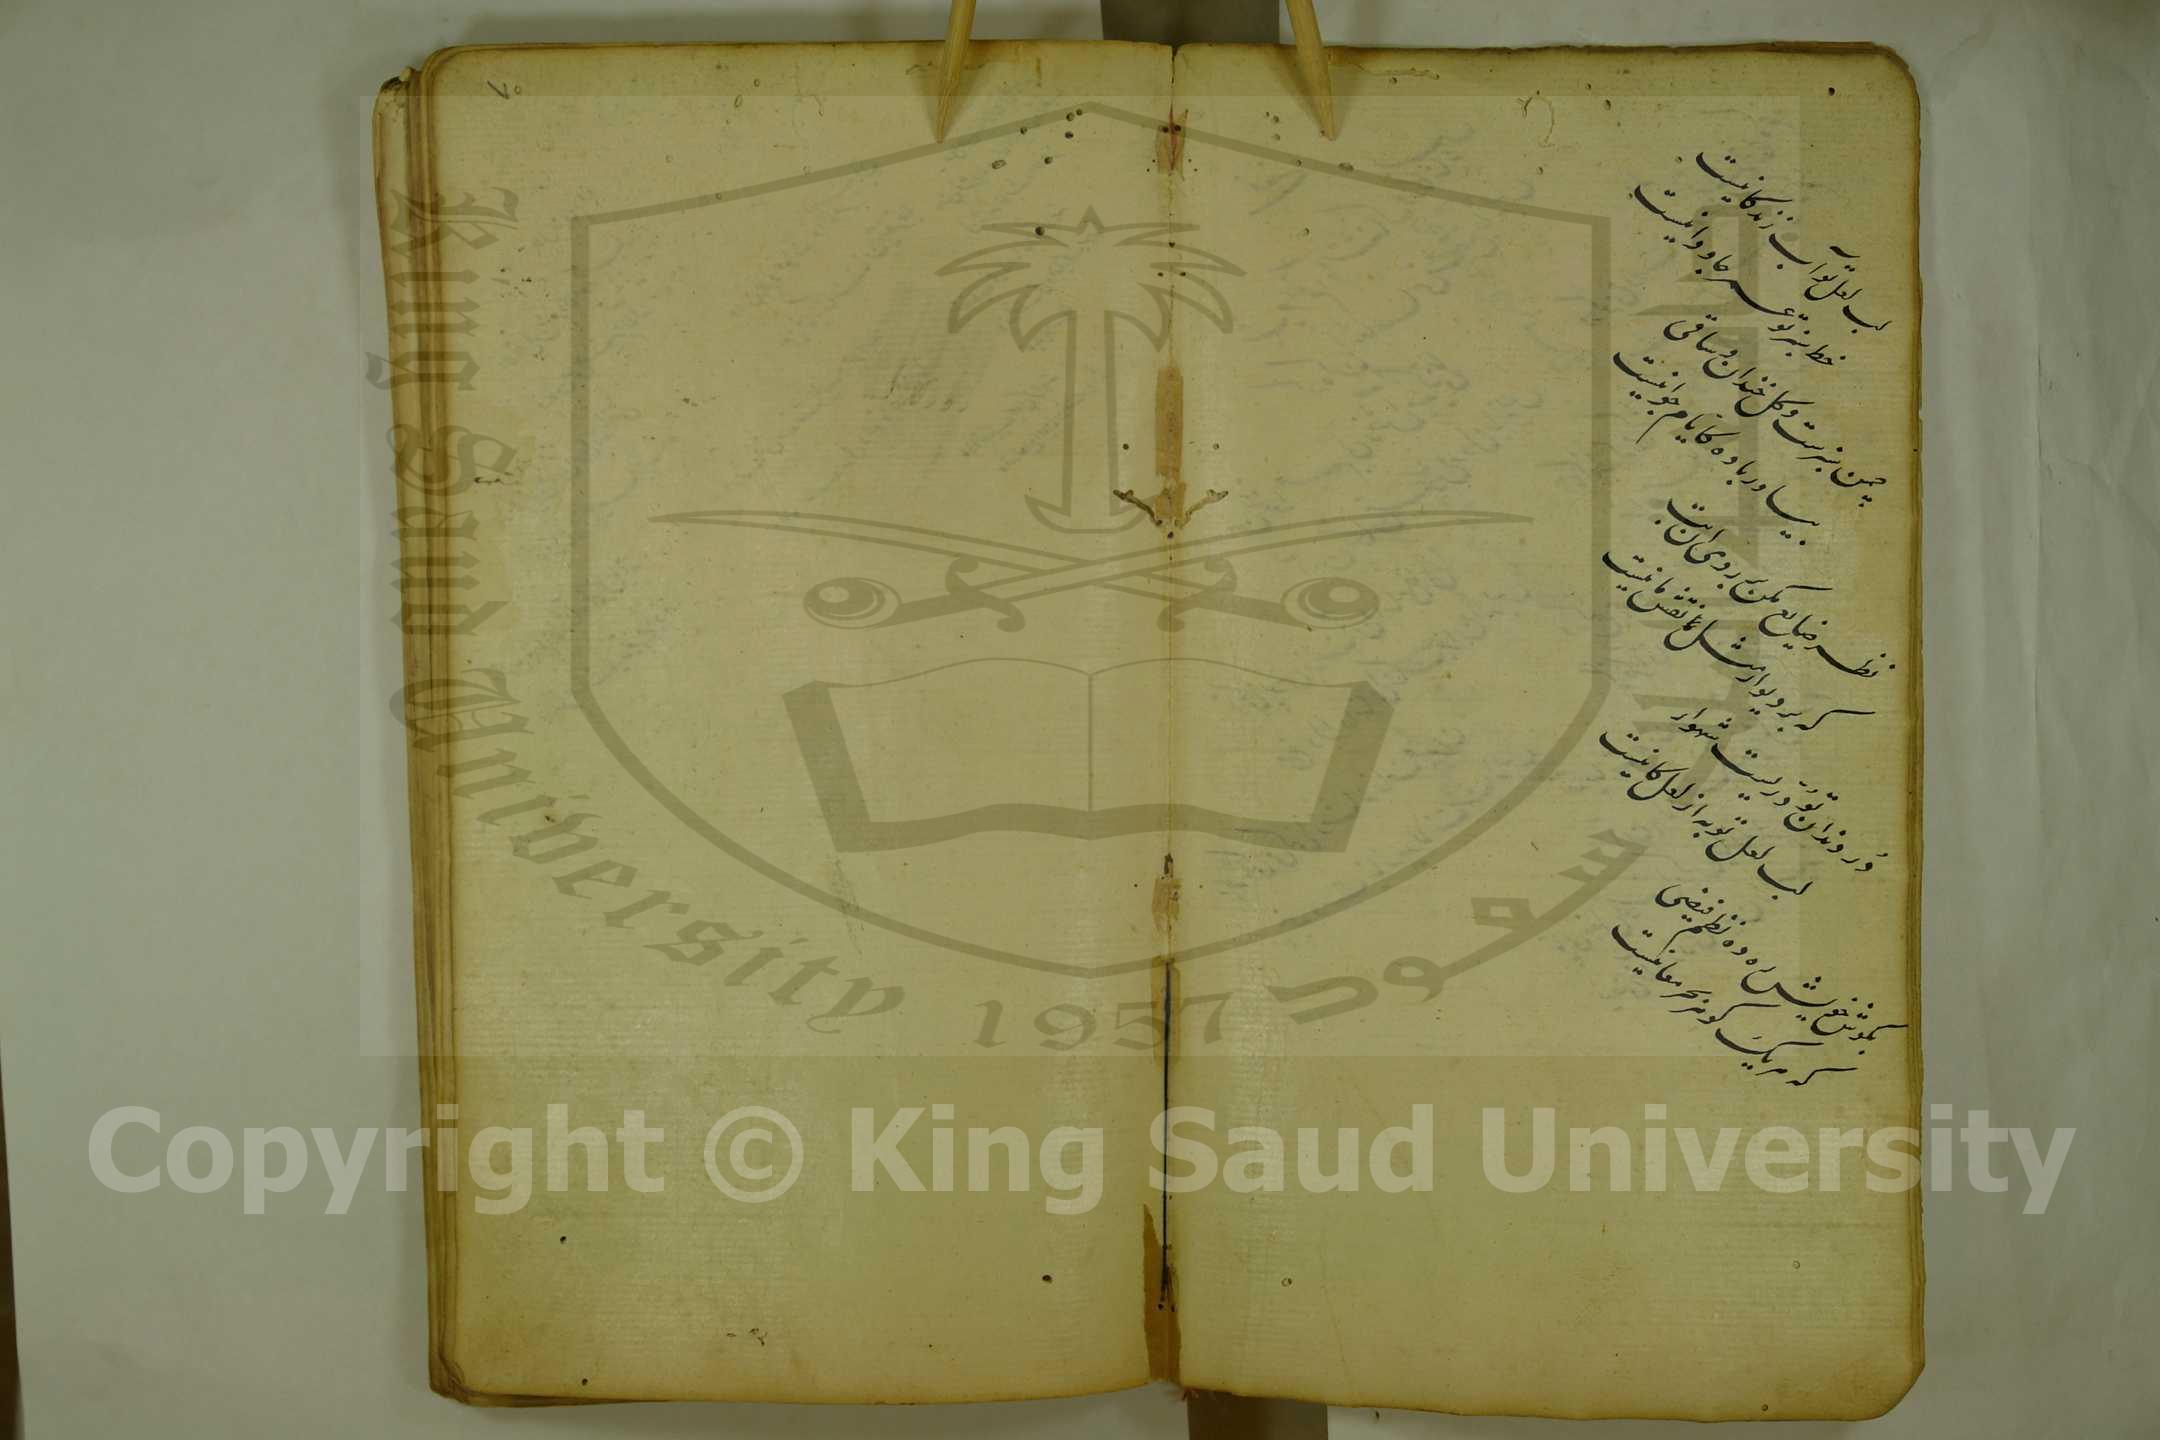 لب لعل تو آب زندکانیست
خط سبز تو عمر جاودانیست
چمن سبزست وکل خندان وساقی
بیا ور باده کایام جوانیست
نظر ضایع مکن بر روی ان بت
که بر دیوار مثل نقش مانیست
دُر دندان تو دریست شهوار
لب لعل تو به از لعل کانیست
بکوش خویش ده نظم فیضی
که هر یک کوهر بحر معانیست
King Saud University
سعود
1957
Copyright © King Saud University